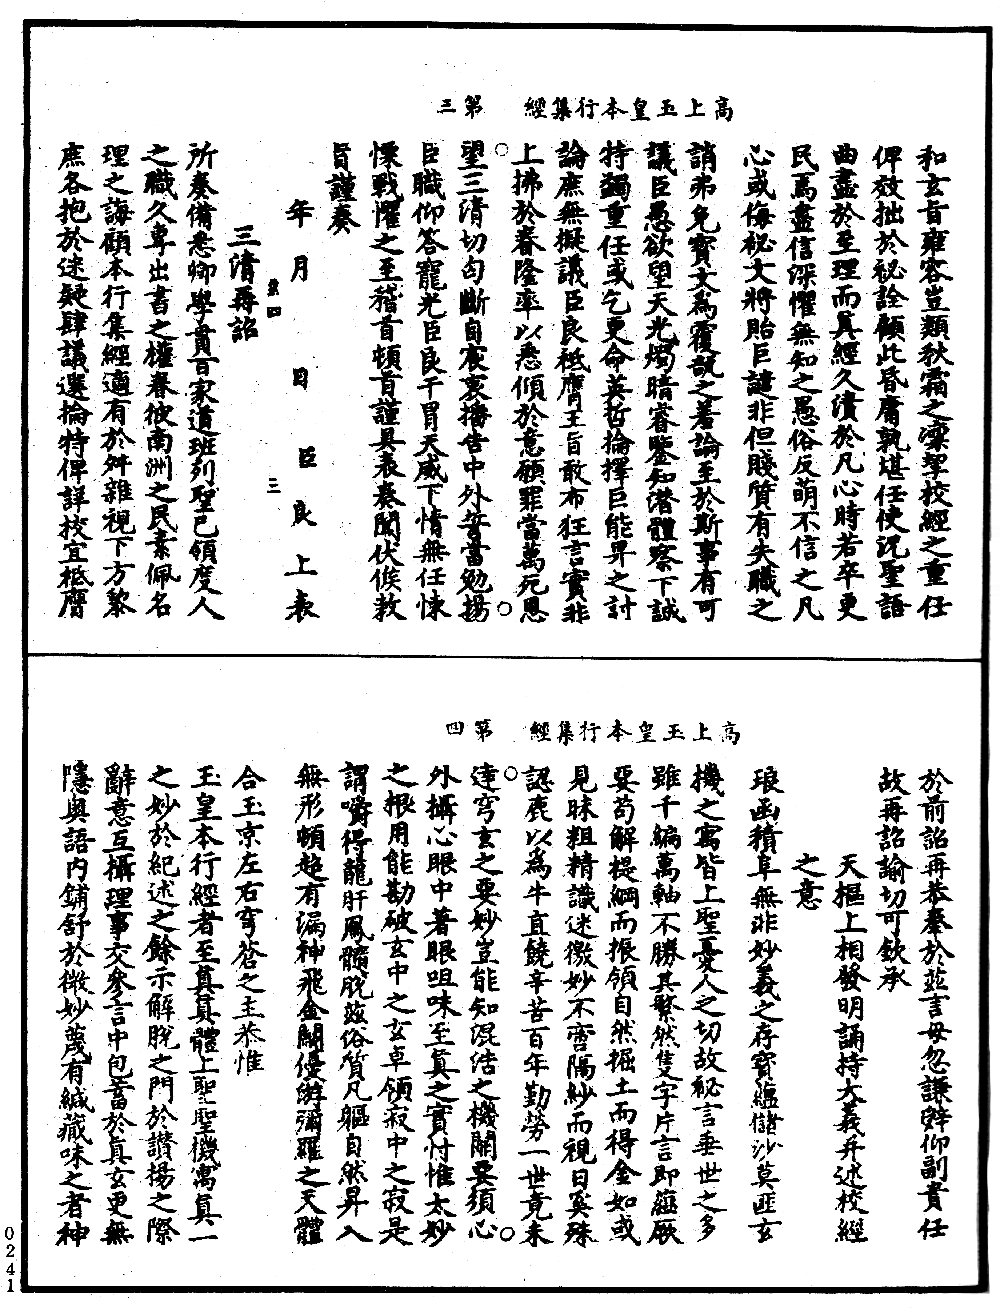 高上玉皇本行集經　第三
和玄旨雍容豈類秋霜之凜挈校經之重任
俾效拙於秘詮顧此昏庸孰堪任使況聖語
曲盡於至理而真經久瀆於凡心時若卒更
民焉盡信深懼無知之愚俗反萌不信之凡
心或侮秘文將貽巨譴非但賤質有失職之
誚弗免寶文為覆瓿之羞論至於斯事有可
議臣愚欲望天光燭暗睿鑒知潛體察下誠
特獨重任或乞更命英哲掄擇巨能畀之討
論庶無擬議臣良祗膺王旨敢布狂言實非
上拂於眷隆率以悉傾於意願罪當萬死恩
望三清切匄斷自宸衷播告中外誓當勉揚
臣職仰答寵光臣良干冒天威下情無任悚
慄戰懼之至稽首頓首謹具表奏聞伏候敕
旨謹奏
年　月　日　臣　良　上　表
第四　三
三清再詔
所奏備悉卿學貫百家道班列聖已領度人
之職久專出書之權眷彼南洲之民素佩名
理之誨顧本行集經適有於舛雜視下方黎
庶各抱於迷疑肆議選掄特俾詳校宜祗膺
高上玉皇本行集經　第四
於前詔再恭奉於茲言毋忽謙辭仰副貴任
故再詔諭切可欽承
天樞上相發明誦持大義并述校經
之意
琅函積阜無非妙義之存寶蘊儲沙莫匪玄
機之寓皆上聖憂人之切故秘言垂世之多
雖千編萬軸不勝其繁然隻字片言即蘊厥
要苟解提綱而振領自然掘土而得金如或
見昧粗精識迷微妙不啻隔紗而視日奚殊
認鹿以為牛直饒辛苦百年勤勞一世竟未
達穹玄之要妙豈能知混浩之機關要須心
外攝心眼中著眼咀味至真之實忖惟太妙
之根用能勘破玄中之玄卓領寂中之寂是
謂嚼得龍肝鳳髓脫茲俗質凡軀自然昇入
無形頓超有漏神飛金闕優游彌羅之天體
合玉京左右穹蒼之主恭惟
玉皇本行經者至真真體上聖聖機寓真一
之妙於紀述之餘示解脫之門於讚揚之際
辭意互攝理事交參言中包蓄於真玄更無
隱奧語內鋪舒於微妙蔑有緘藏味之者神
0241